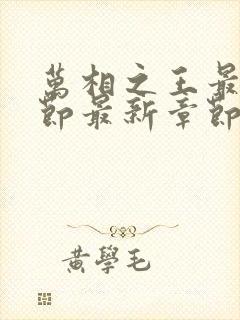 萬相之王最
節最新章節
黃學毛